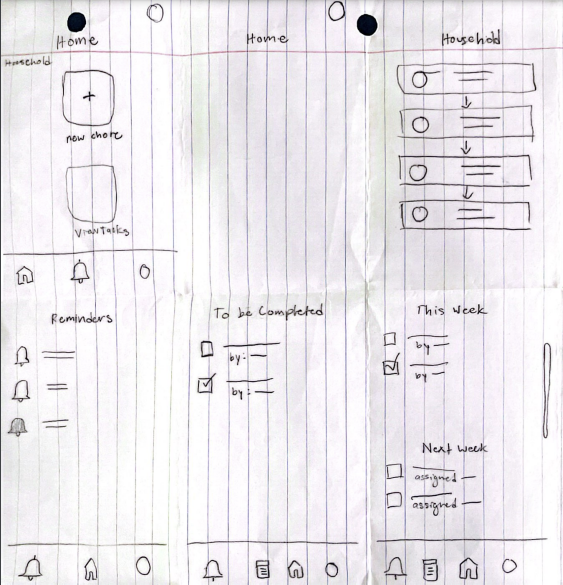 Home
Household
+
new chore
View Tasks
Home
Household
Reminders
To be Completed
by:
by:
This Week
by
by
Next Week
assigned
assigned